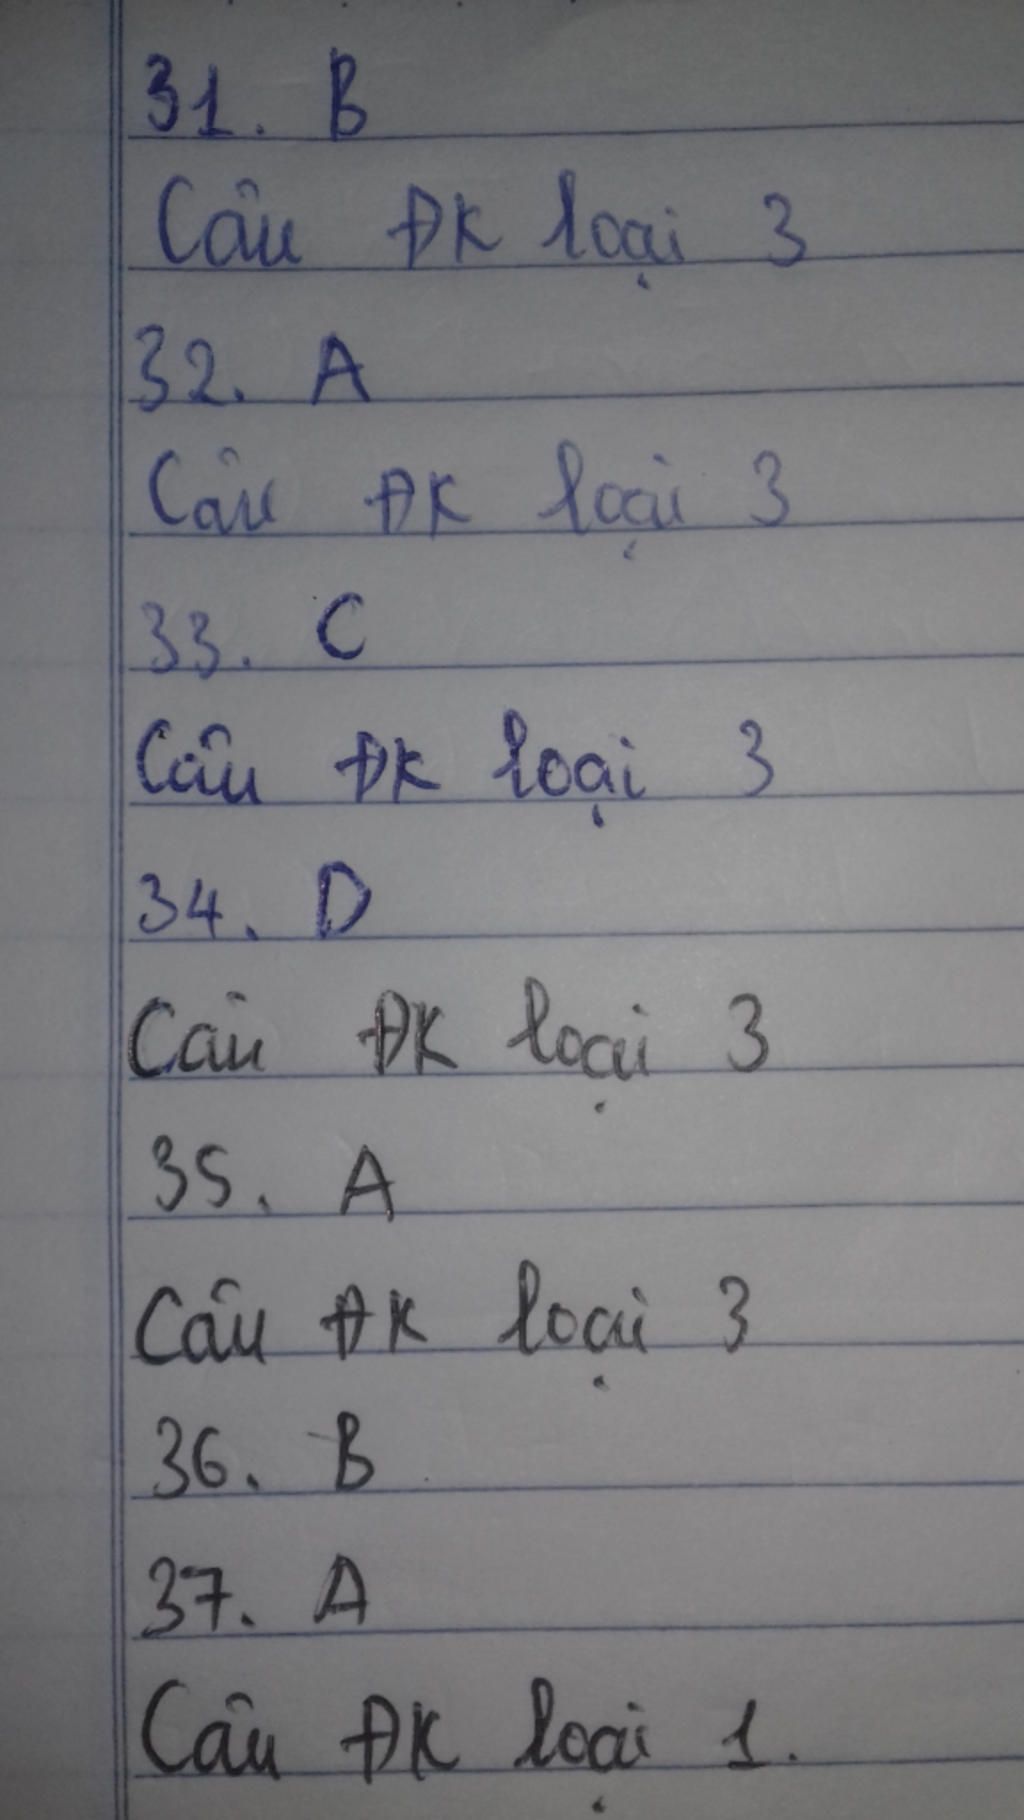 31. B
Câu ĐK loại 3
32. A
Câu ĐK loại 3
33. C
Câu ĐK loại 3
34. D
Câu ĐK loại 3
35. A
Câu ĐK loại 3
36. B
37. A
Câu ĐK loại 1.